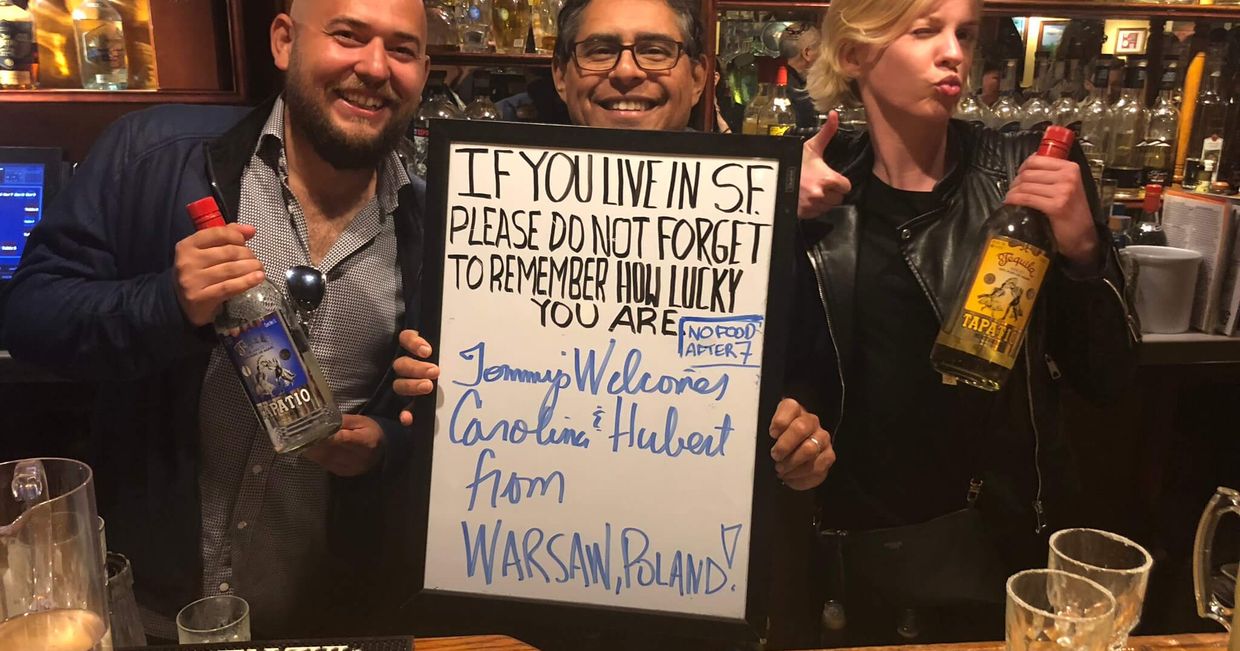 IF YOU LIVE IN S.F.
PLEASE DO NOT FORGET
TO REMEMBER HOW LUCKY
YOU ARE.
NO FOOD
AFTER 7
Tommy's Welcomes
Carolina & Hubert
from
WARSAW, POLAND!
TAPATIO
Tequila
TAPATIO